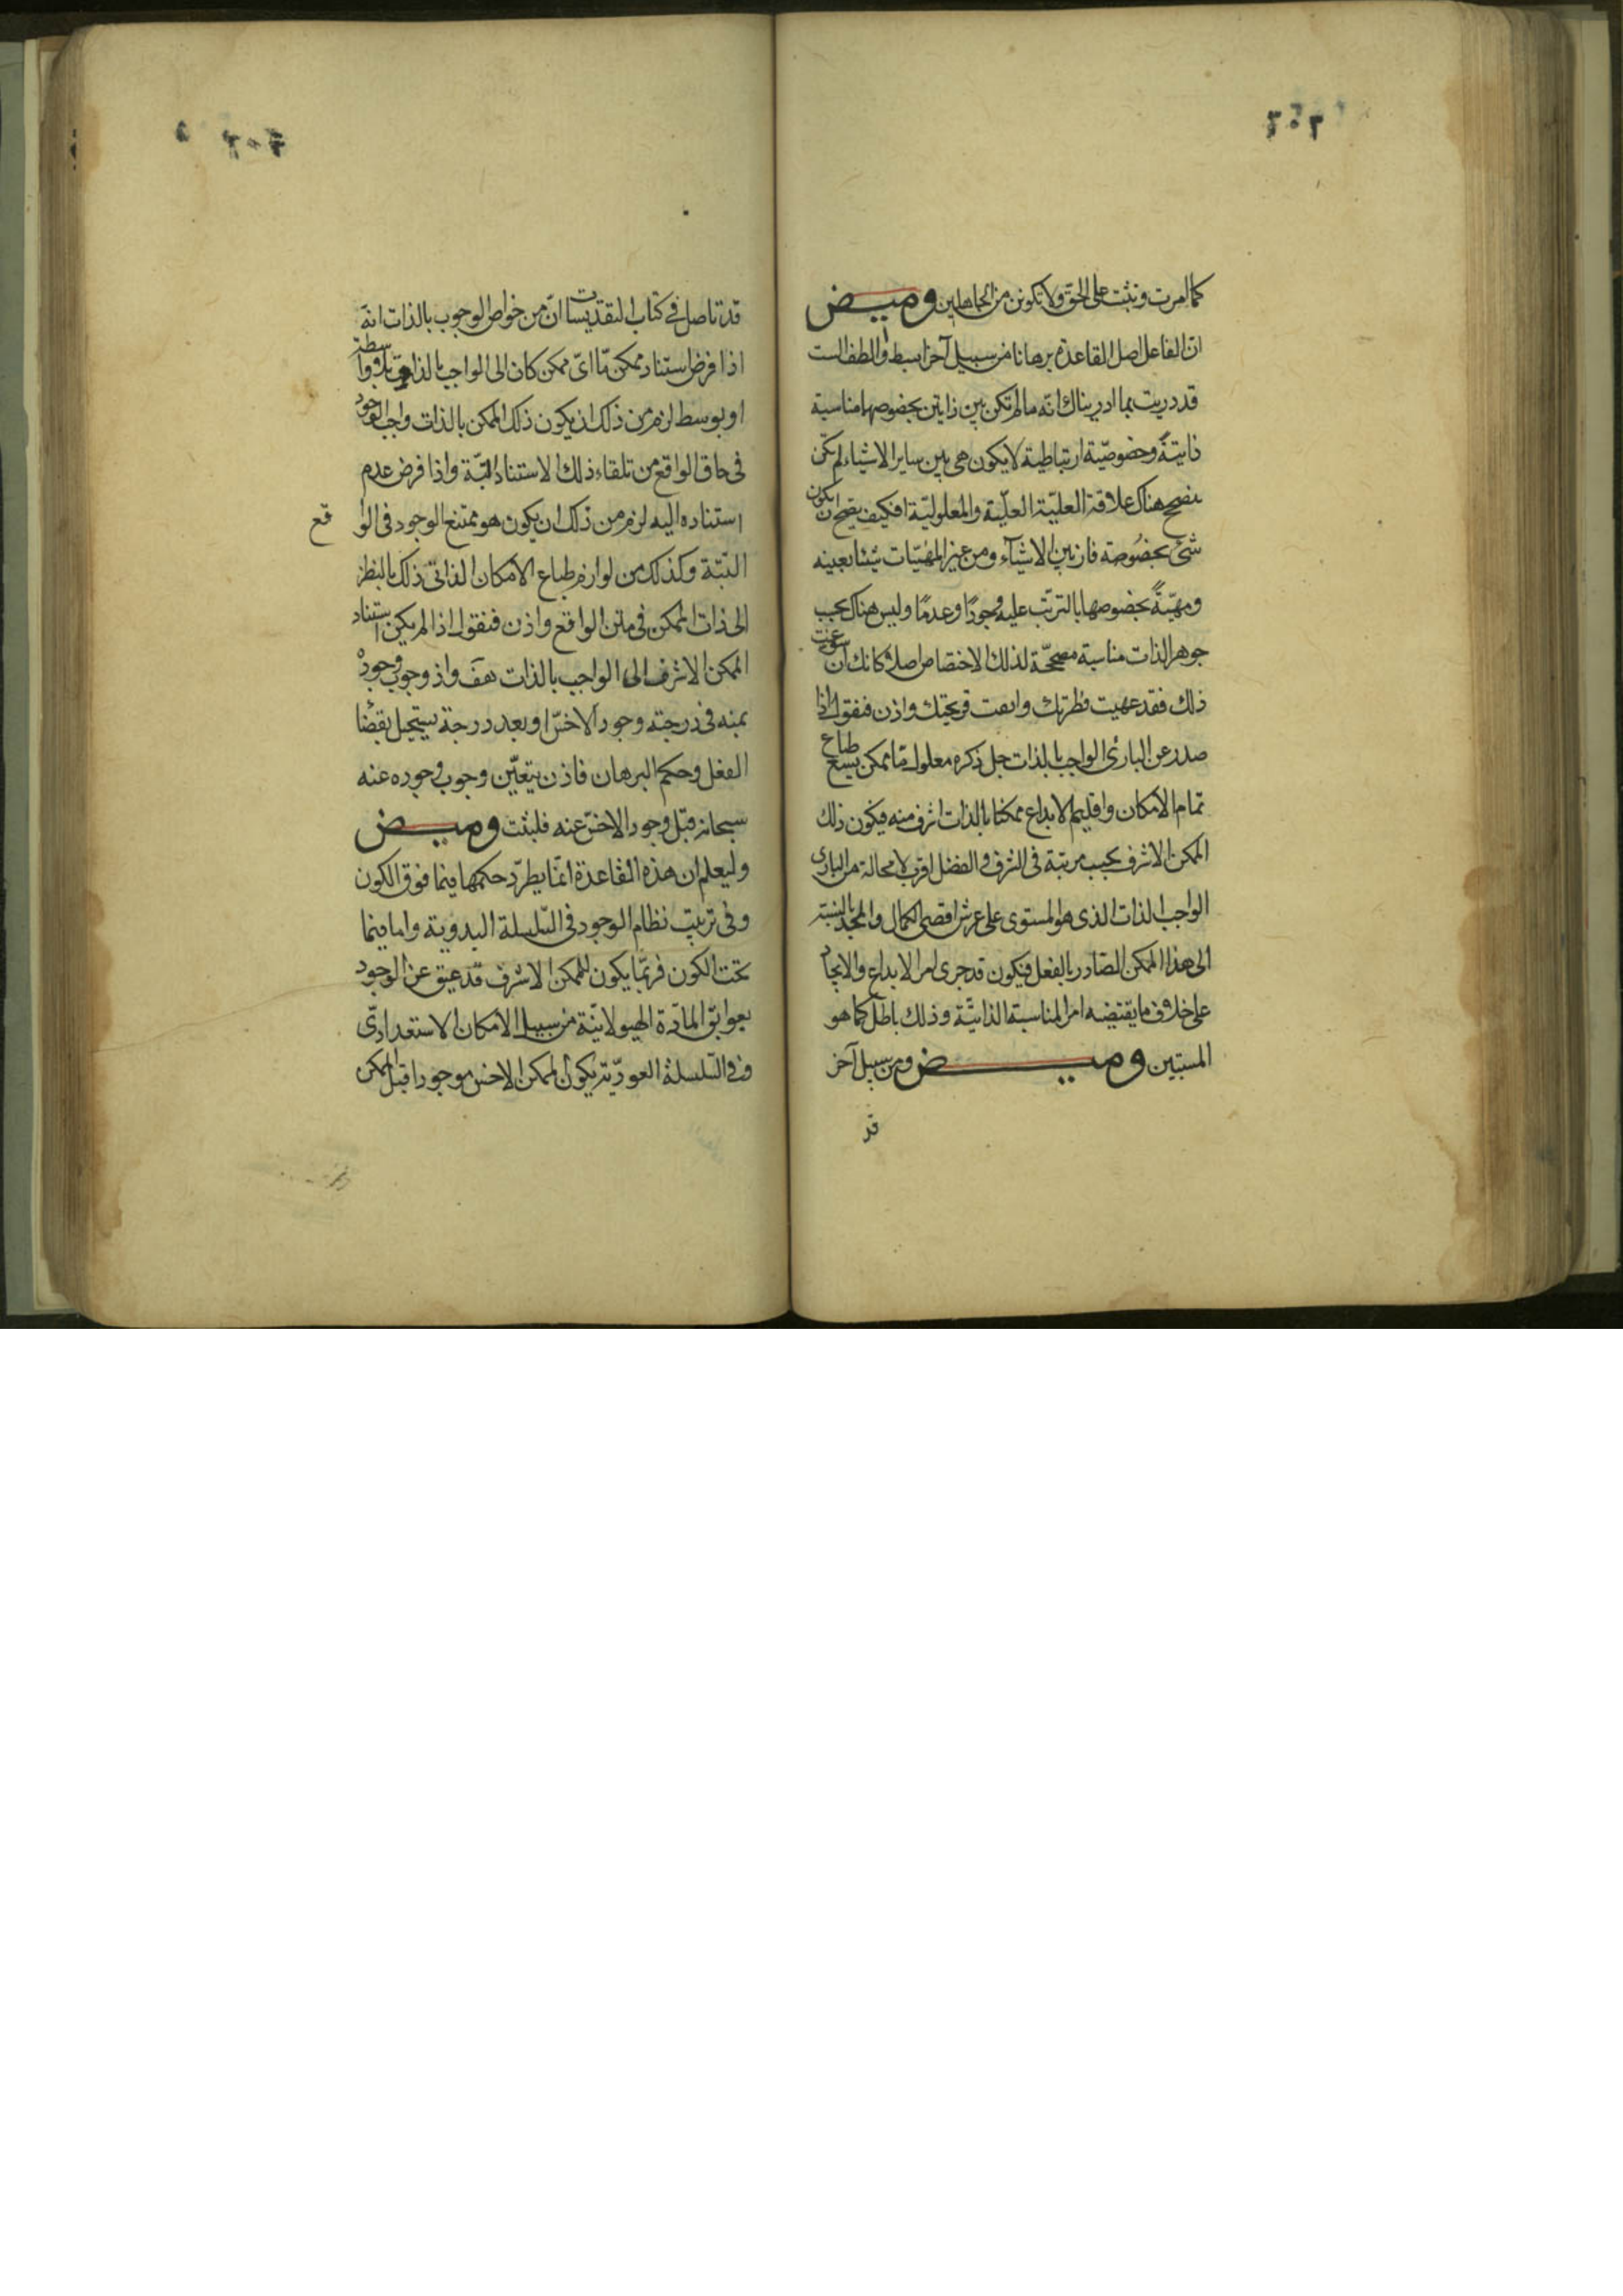 كما امرت وتثبت على الحق ولا تكونن من الجاهلين وميض
ان الفاعل اصل القاعدة برهانا من سبيل آخر ابسط والطف الست
قد دريت بما ادريناك انه ما لم تكن بين ذاتين بخصوصهما مناسبة
ذاتية وخصوصية ارتباطية لا يكون هى بين ساير الاشياء لم تكن
هناك علاقة العلية العلية والمعلولية افكيف يصح ان يكون
شئ بخصوصه من بين الاشياء ومن غير المهيات شيئا بعينه
ومهية بخصوصها بالترتب عليه وجودا وعدما وليس هناك بحسب
جوهر الذات مناسبة مصححة لذلك الاختصاص اصلا كانك ان سوغت
ذلك فقد عهيت فطرتك قريحتك واذن فنقول اذا
صدر عن البارئ الواجب بالذات جل ذكره معلول ما ممكن يسع طباع
تمام الامكان واقليم الابداع ممكنا بالذات اشرف منه فيكون ذلك
الممكن الاشرف بحسب مرتبة فى الشرف والفضل اقرب لا محالة من البارى
الواجب الذات الذى هو المستوى على عرش اقصى الكمال والمجد بالنسبة
الى هذا الممكن الصادر بالفعل فيكون قد جرى امر الابداع والايجاد
على خلاف ما يقتضيه امر المناسبة الذاتية وذلك باطل كما هو
المستبين وميض ومن سبيل آخر
قد
قد تاصل فى كتاب التقديسات ان من خواص الوجوب بالذات انه
اذا فرض استناد ممكن ما اى ممكن كان الى الواجب بالذات بلا واسطة
او بوسط لزم من ذلك ان يكون ذلك الممكن بالذات واجب الوجود
فى حاق الواقع من تلقاء ذلك الاستناد البتة واذا فرض عدم
استناده اليه لزم من ذلك ان يكون هو ممتنع الوجود فى الواقع
البتة وكذلك من لوازم طباع الامكان الذاتى ذلك بالنظر
الى ذات الممكن فى متن الواقع واذن فنقول اذا لم يكن استناد
الممكن الاشرف الى الواجب بالذات هف واذ وجوب وجوده
عنه فى درجته وجود الاخس او بعد درجة يستحيل بقضاء
العقل وحكم البرهان فاذن يتعين وجوب وجوده عنه
سبحانه قبل وجود الاخس عنه فليثبت وميض
وليعلم ان هذه القاعدة انما يطرد حكمها فيما فوق الكون
وفى ترتيب نظام الوجود فى السلسلة البدوية واما فيما
تحت الكون فربما يكون للممكن الاشرف قد عيق عن الوجود
بعوائق المادة الهيولانية من سبيل الامكان الاستعدادى
وفى السلسلة العودية يكون الممكن الاخس موجودا قبل الممكن